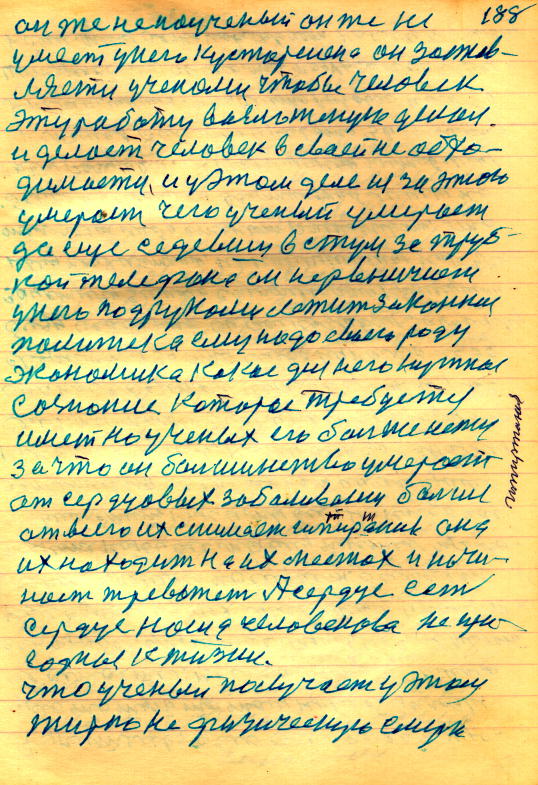 188
он же не поученый он же не
умеет у него кустаремена он застав-
ляети ученому чтобы человек
эту работу
и делает человек в своей необхо-
димасти, и у этом деле и за этого
умерает чего ученый умерает
да еще седевши в стул за труб-
кой телефона он нервничает
у него под руками лежит законная
политека ему надо своего роду
экономика какае для него нужная
сознание которае требуется
имет но ученых его болже нету
за что он болшинство умерает
от сердцовых заболеваний болш
от всего их снимает гипиртания она
их находит на их местах и начи-
нает тревожет А сердце ест
сердце ноша человекова не при-
годная к жизни.
что ученый получает у этом
жирно не физическую смерт
гипиртания